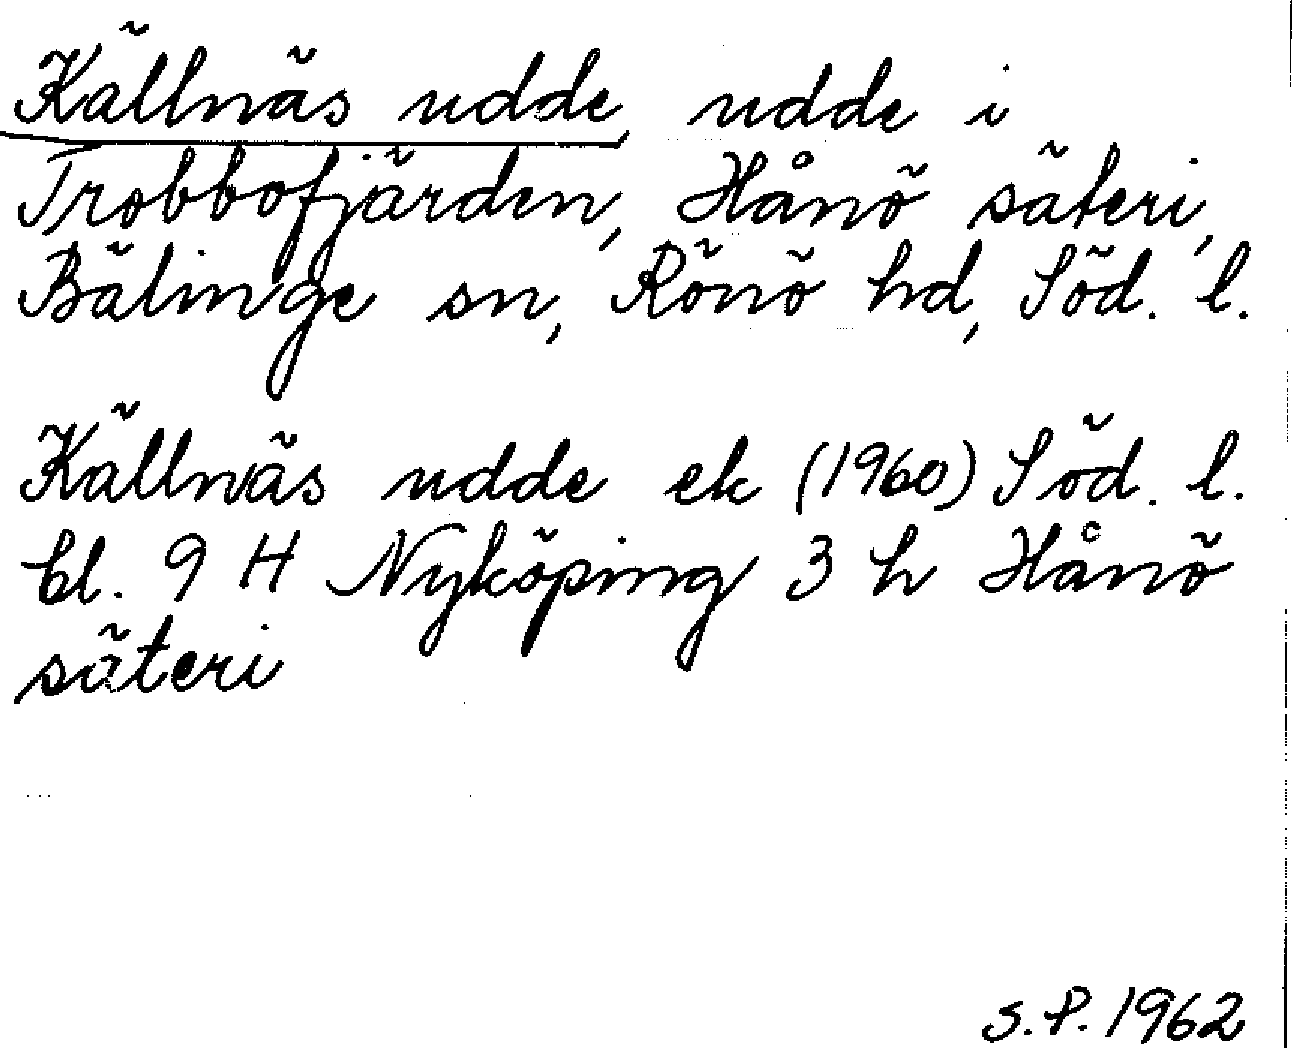 Källnäs udde, udde i
Trobbofjärden, Hånö säteri,
Bälinge sn, Rönö hd, Söd. l.
Källnäs udde ek (1960) Söd. l.
bl. 9 H Nyköping 3 h Hånö
säteri
S.P. 1962